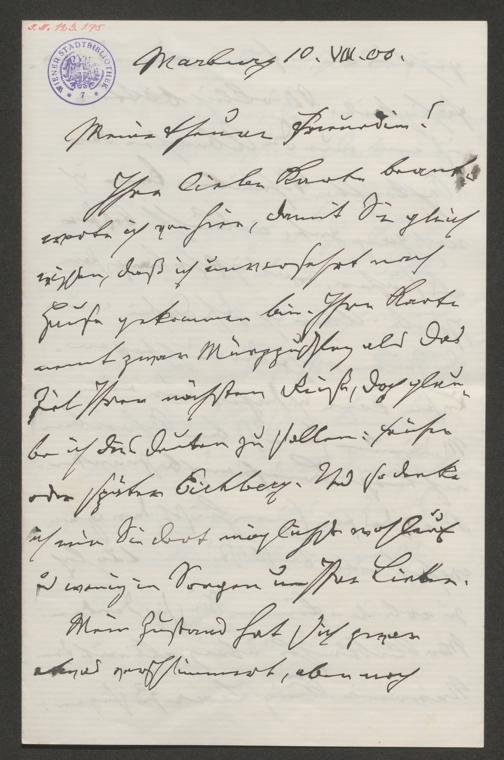 J. N. 123.195
WIENER STADTBIBLIOTHEK
7
Marburg 10. VIII. 00.
Meine theure Freundin!
Ihre liebe Karte beant-
worte ich von hier, damit Sie gleich
wissen, daß ich unversehrt nach
Hause gekommen bin. Ihre Karte
nennt zwar Mürzzuschlag als das
Ziel Ihrer nächsten Reise, doch glau-
be ich das deuten zu sollen: früher
oder später Eichberg. Und so denke
ich mir Sie dort möglichst wohlauf
u wenig in Sorgen um Ihre Lieben.
Mein Zustand hat sich zwar
etwas verschlimmert, aber noch